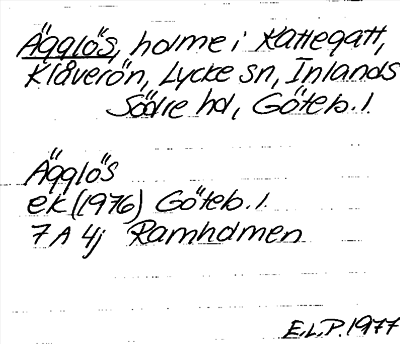 Ägglös, holme i Kattegatt,
Klåverön, Lycke sn, Inlands
Södre hd, Göteb. l.
Ägglös
ek (1976) Göteb. l.
7 A 4j Ramholmen
E.L.P. 1977